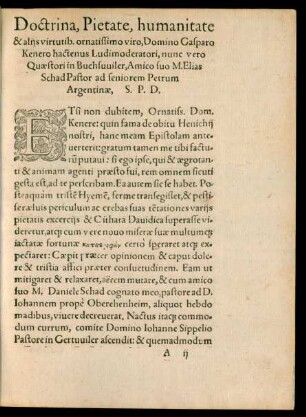 Doctrina, Pietate, humanitate
& alijs virtutib. ornatissimo viro, Domino Gasparo
Kenero hactenus Ludimoderatori, nunc vero
Quæstori in Buchsuuiler, Amico suo M. Elias
Schad Pastor ad seniorem Petrum
Argentinæ, S. P. D.
ETsi non dubitem, Ornatiss. Dom.
Kenere: quin fama de obitu Henichij
nostri, hanc meam Epistolam ante-
uerterit: gratum tamen me tibi factu-
rũ putaui: si ego ipse, qui & ægrotan-
ti & animam agenti præsto fui, rem omnem sicuti
gesta est, ad te perscribam. Ea autem sic se habet. Po-
steaquàm tristẽ Hyemẽ, ferme transegisset, & pesti-
ferã luis periculum ac crebas suas tẽtationes varijs
pietatis excercijs & Cithara Dauidica superasse vi-
deretur, atq; cum vere nouo miseræ suæ multumq;
iactatæ fortunæ certò speraret atq; ex-
pectaret: Cæpit præter opinionem & caput dole-
re & tristia affici præter consuetudinem. Eam ut
mitigaret & relaxaret, aërem mutare, & cum amico
suo M. Daniele Schad cognato meo, pastore ad D.
Iohannem propè Oberehenheim, aliquot hebdo
madibus, viuere decreuerat. Nactus itaq; commo-
dum currum, comite Domino Iohanne Sippelio
Pastore in Gertuuiler ascendit: & quemadmodum
A ij